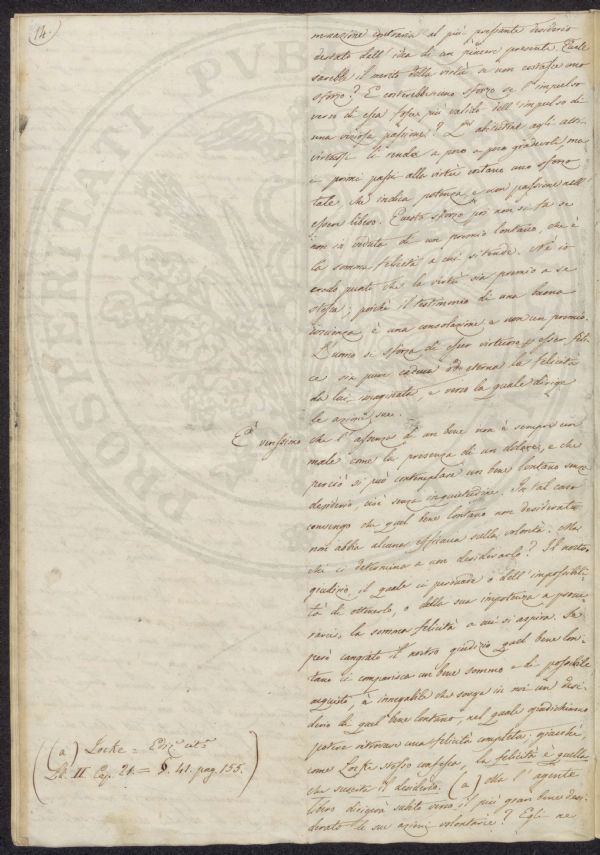 14.
minazione contraria al più pressante desiderio
destato dall' idea di un piacere presente. Quale
sarebbe il merito della virtù se non costasse uno
sforzo? E costerebbe uno sforzo se l' impulso
verso di essa fosse più valido dell' impulso di
una viziosa passione? L' abitudine agli atti
virtuosi li rende a poco a poco gradevoli, ma
i primi passi alla virtù costano uno sforzo
tale che indica potenza e non passione nell'
esser libero. Questo sforzo poi non si fa se
non in veduta di un premio lontano, che è
la somma felicità a cui si tende. Nè io
credo punto che la virtù sia premio a se
stessa; poichè il testimonio di una buona
coscienza è una consolazione e non un premio.
L' uomo si sforza di esser virtuoso p esser feli-
ce sia pure caduca od eterna la felicità
da lui imaginata, e verso la quale dirige
le azioni sue.
È verissimo che l' assenza di un bene non è sempre un
male come la presenza di un dolore, e che
perciò si può contemplare un bene lontano senza
desiderio, cioè senza inquietudine. In tal caso
convengo che quel bene lontano non desiderato
non abbia alcuna efficacia sulla volontà. Ma
chi ci determina a non desiderarlo? Il nostro
giudizio, il quale ci persuade o dell' impossibili-
tà di ottenerlo, o della sua impotenza a procu-
rarci la somma felicità a cui si aspira. Se
però cangiato il nostro giudizio quel bene lon-
tano ci comparisca un bene sommo e di possibile
acquisto, è innegabile che sorga in noi un desi-
derio di quel bene lontano, nel quale giudichiamo
potere ritrovare una felicità completa; giacchè,
come Locke stesso confessa, la felicità è quella
che suscita il desiderio. (a) Ma l' agente
libero dirigerà subito verso il più gran bene desi-
derato le sue azioni volontarie? Egli ne
(a) Locke = Ediz.e cit.a
Lib. II. Cap. 21. = §. 41. pag. 155.